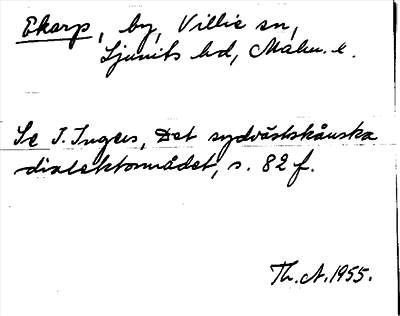 Ekarp, by, Villie sn,
Ljunits hd, Malm. l.
Se I. Ingers, Det sydvästskånska
dialektområdet, s. 82 f.
Th. A. 1955.